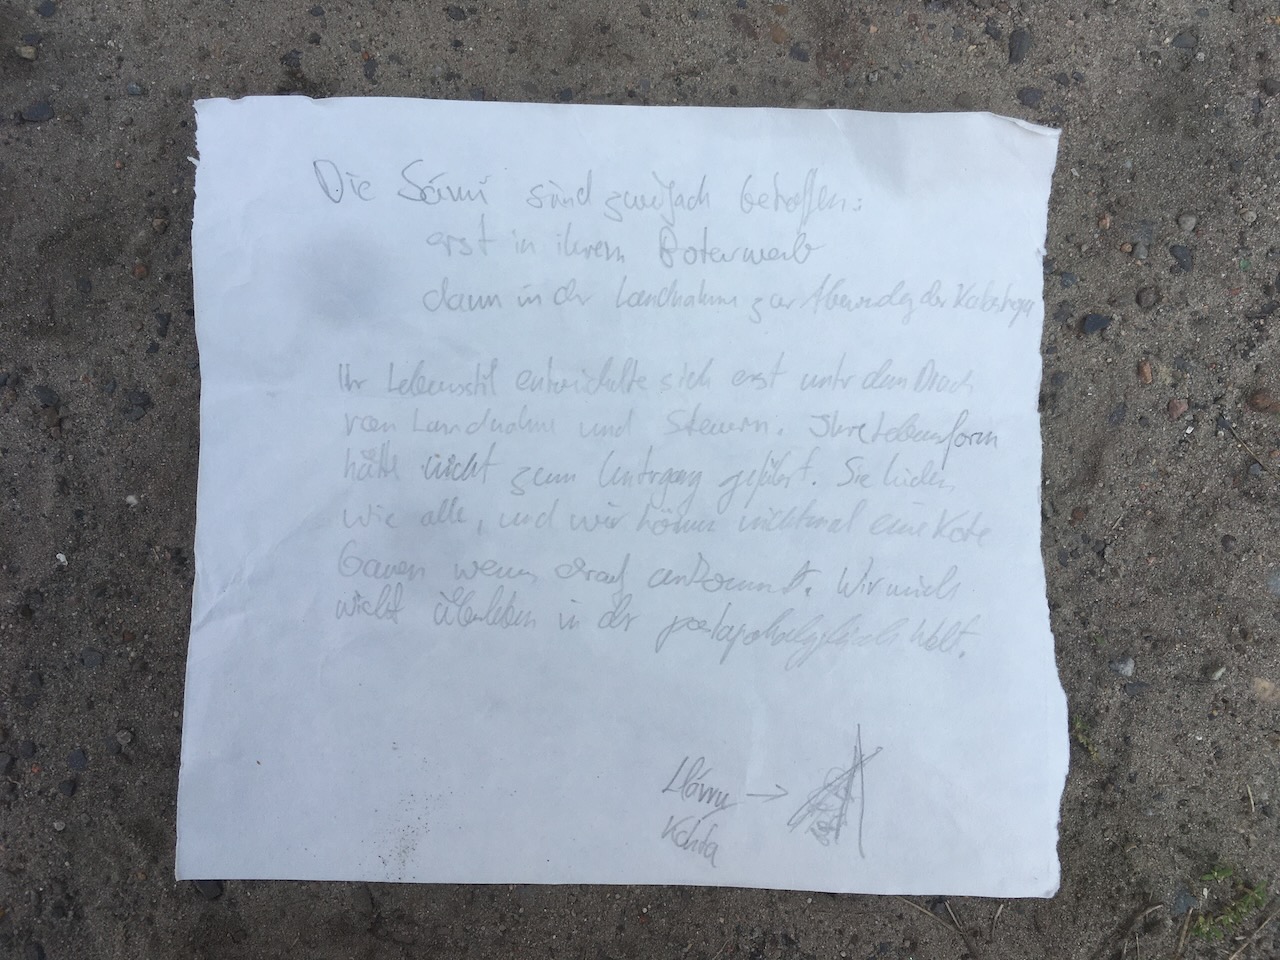 Die Sámi sind zweifach betroffen:
erst in ihrem
dann in der Landnahme zur Abwendung der
Ihr Lebensstil entwickelte sich erst unter dem Druck
von Landnahme und Steuern. Ihre Lebensform
hätte nicht zum Untergang geführt. Sie leiden
wie alle, und wir können nichtmal eine Kote
bauen wenn drauf ankommt. Wir
nicht überleben in der Welt.
→
Kohta